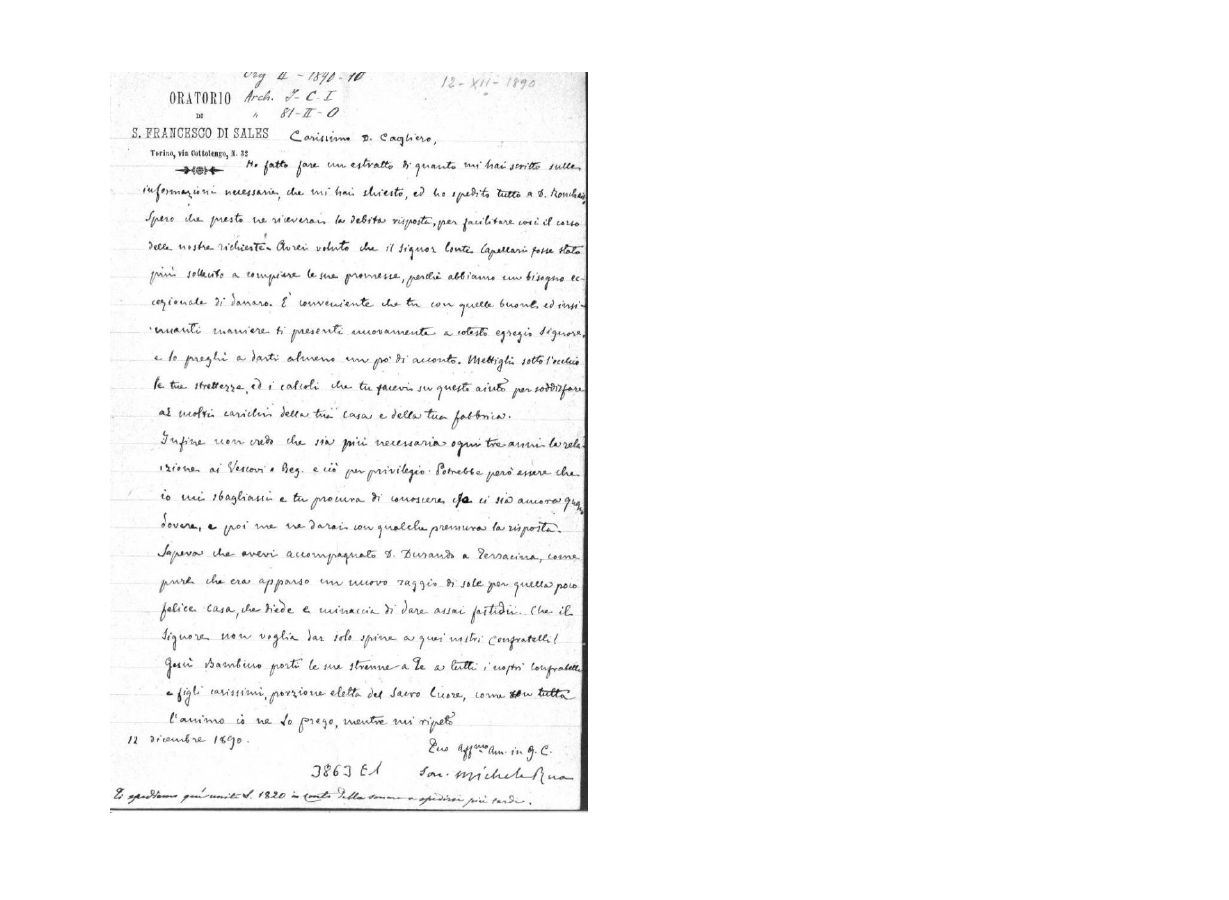 Org 4 - 1890 - 10
12 - XII - 1890
ORATORIO
Arch. S - C - I
DI
" 81 - II - O
S. FRANCESCO DI SALES
Carissimo D. Cagliero,
Torino, via Cottolengo, N. 32
Ho fatto fare un estratto di quanto mi hai scritto sulle
informazioni necessarie, che mi hai chiesto, ed ho spedito tutto a D.
Spero che presto ne riceverai la debita risposta, per facilitare così il corso
delle nostre richieste. Avrei voluto che il Signor Conte Capellari fosse stato
più sollecito a compiere le sue promesse, perchè abbiamo un bisogno ec-
cezionale di danaro. E' conveniente che tu con quelle buone ed insi-
nuanti maniere ti presenti nuovamente a cotesto egregio Signore,
e lo preghi a darti almeno un pò di acconto. Mettigli sott'occhio
le tue strettezze, ed i calcoli che tu facevi su questo aiuto per soddisfare
ai molti carichi della tua casa e della tua fabbrica.
Infine non credo che sia più necessaria ogni tre anni la rela-
zione ai Vescovi e Reg. e ciò per privilegio. Potrebbe però essere che
io mi sbagliassi e tu procura di conoscere se ci sia ancora
dovere, e poi me ne darai con qualche premura la risposta.
Sapeva che avevi accompagnato D. Durando a Terracina, come
pure che era apparso un nuovo raggio di sole per quella poco
felice casa, che diede e minaccia di dare assai fastidii. Che il
Signore non voglia dar solo spine a quei nostri Confratelli!
Gesù Bambino porti le sue strenne a Te a tutti i nostri Confratelli
e figli carissimi, porzione eletta del Sacro Cuore, come con tutta
l'animo io ne Lo prego, mentre mi ripeto
12 dicembre 1890.
Tuo Aff.mo Am. in G. C.
3863 E1
Sac. Michele Rua
Ti spediamo qui unite L. 1820 in conto della somma a spedirsi più tardi.